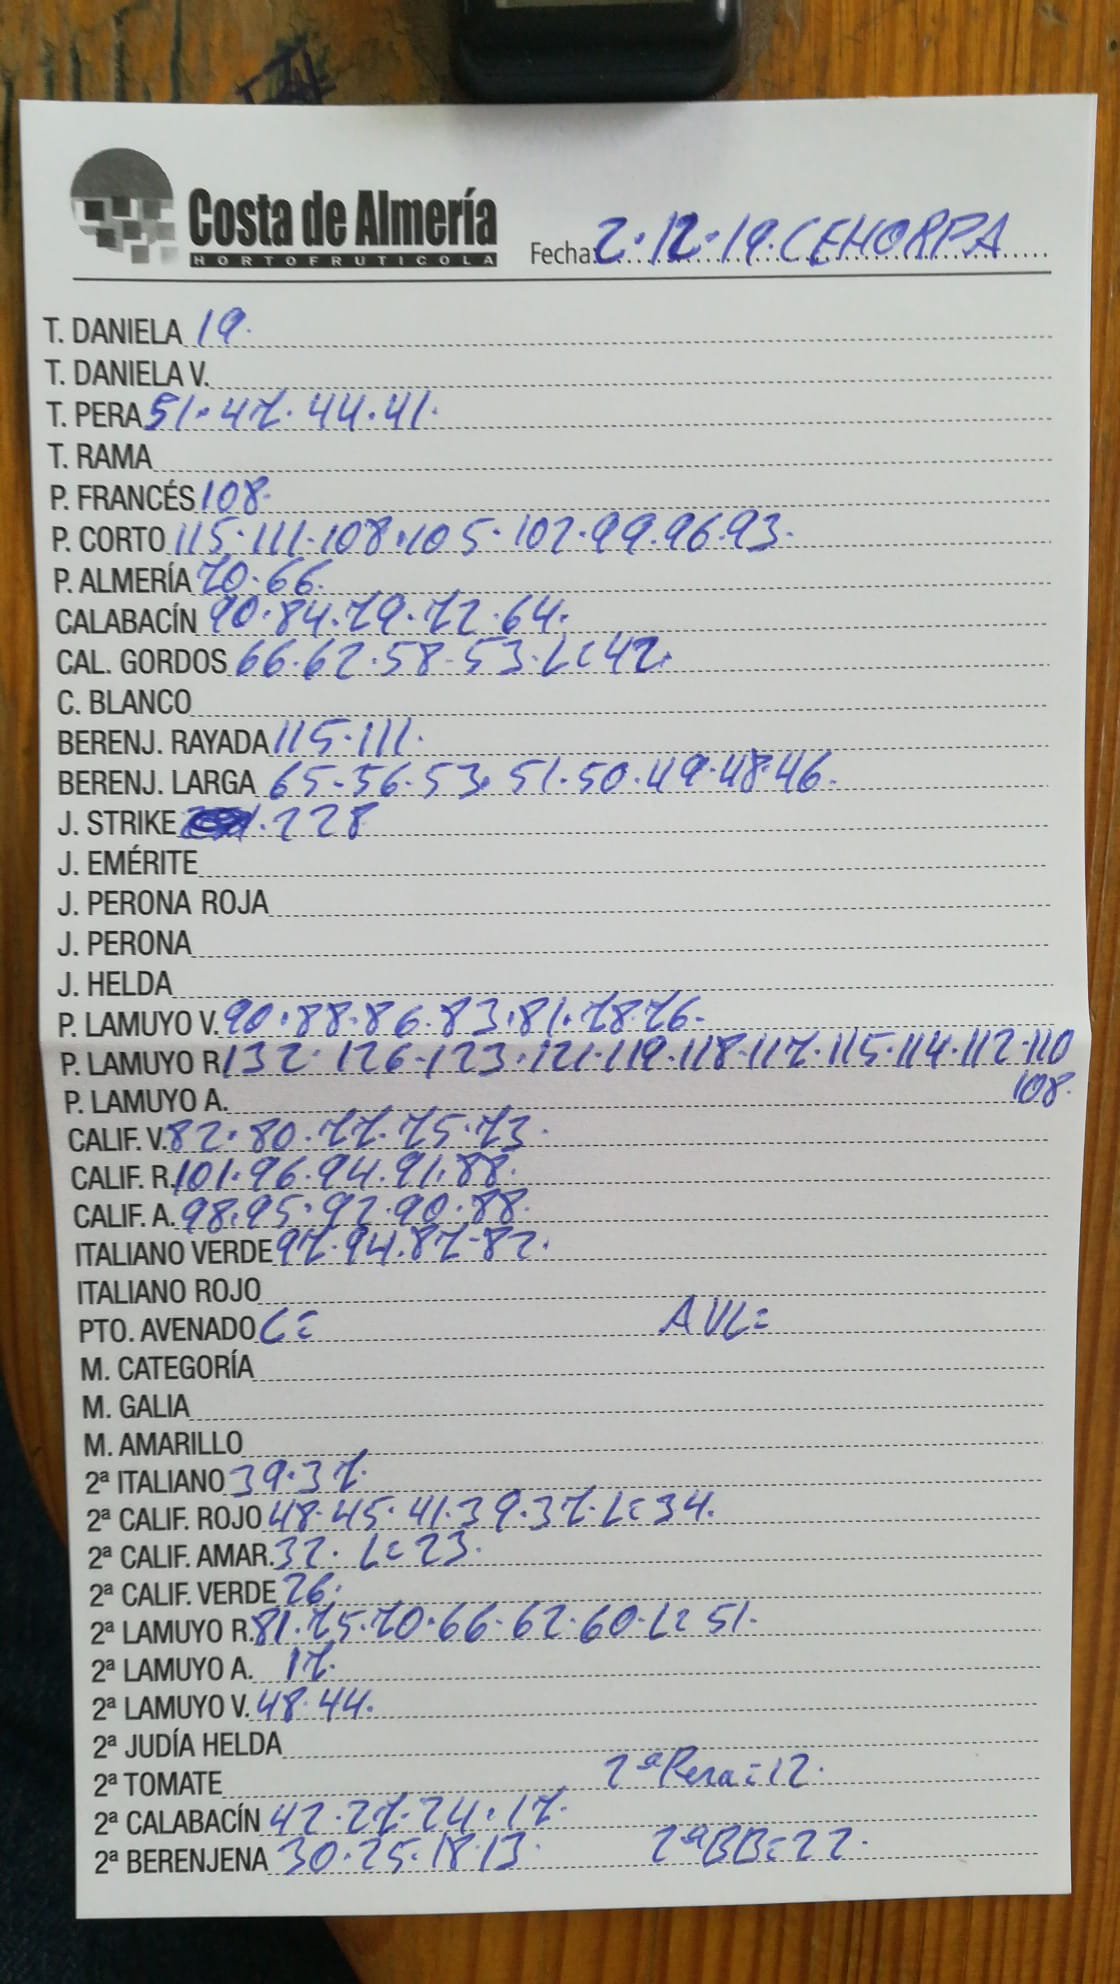 Costa de Almería
HORTOFRUTICOLA
Fecha: 2.12.19. CEHORPA
T. DANIELA 19.
T. DANIELA V.
T. PERA 51.47.44.41.
T. RAMA
P. FRANCÉS 108.
P. CORTO 115.111.108.105.102.99.96.93.
P. ALMERÍA 70.66.
CALABACÍN 90.84.79.72.64.
CAL. GORDOS 66.62.58.53.L=42.
C. BLANCO
BERENJ. RAYADA 115.111.
BERENJ. LARGA 65.56.53.51.50.49.48.46.
J. STRIKE .228
J. EMÉRITE
J. PERONA ROJA
J. PERONA
J. HELDA
P. LAMUYO V. 90.88.86.83.81.78.76.
P. LAMUYO R. 132.126.123.121.119.118.117.115.114.112.110
108.
P. LAMUYO A.
CALIF. V. 82.80.77.75.73.
CALIF. R. 101.96.94.91.88.
CALIF. A. 98.95.92.90.88.
ITALIANO VERDE 97.94.87.82.
ITALIANO ROJO
PTO. AVENADO C= AVL=
M. CATEGORÍA
M. GALIA
M. AMARILLO
2ª ITALIANO 39.37.
2ª CALIF. ROJO 48.45.41.39.37.L=34.
2ª CALIF. AMAR. 32. L=23.
2ª CALIF. VERDE 26.
2ª LAMUYO R. 81.75.70.66.62.60.L=51.
2ª LAMUYO A. 17.
2ª LAMUYO V. 48.44.
2ª JUDÍA HELDA
2ª TOMATE 2ª Pera=12.
2ª CALABACÍN 42.27.24.17.
2ª BERENJENA 30.25.18.13. 2ª BB=22.